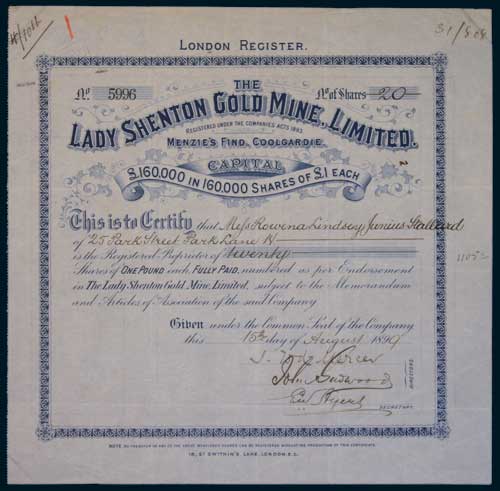 LONDON REGISTER.
No. 5996
No. of Shares 20
THE
LADY SHENTON GOLD MINE, LIMITED.
REGISTERED UNDER THE COMPANIES ACTS 1893.
MENZIE'S FIND, COOLGARDIE.
CAPITAL
£160,000 IN 160,000 SHARES OF £1 EACH
This is to Certify that Miss Rowena Lindsey Junius Stallard
of 25 Park Street Park Lane W
is the Registered Proprietor of twenty
Shares of ONE POUND each, FULLY PAID, numbered as per Endorsement
in The Lady Shenton Gold Mine, Limited, subject to the Memorandum
and Articles of Association of the said Company.
Given under the Common Seal of the Company
this 15th day of August 1899
DIRECTORS
SECRETARY
NOTE
18, ST SWITHIN'S LANE, LONDON E.C.